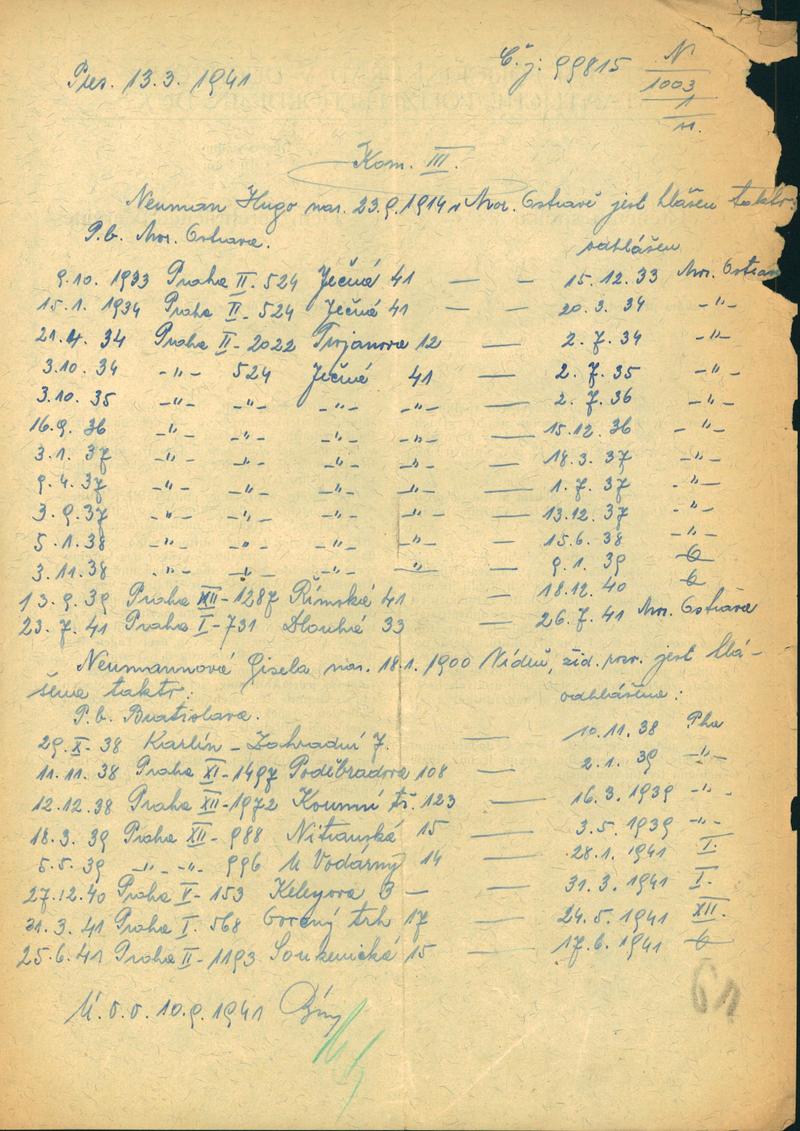 Pres. 13.3. 1941 Č.j: 99815 N
1003
1
41.
Kom. III.
Neuman Hugo nar. 23.9.1914 v Mor. Ostravě jest hlášen takto:
P.b. Mor. Ostrava. odhlášen
9.10. 1933 Praha II. 524 Ječná 41 — — 15.12. 33 Mor. Ostrava
15.1. 1934 Praha II - 524 Ječná 41 — — 20.3. 34 -"-
21.4. 34 Praha II - 2022 Trojanova 12 — 2. 7. 34 -"-
3.10. 34 -"- 524 Ječná 41 — 2. 7. 35 -"-
3.10. 35 -"- -"- -"- -"- — 2. 7. 36 -"-
16.9. 36 -"- -"- -"- -"- — 15.12. 36 -"-
3.1. 37 -"- -"- -"- -"- — 18.3. 37 -"-
9.4. 37 -"- -"- -"- -"- — 1.7. 37 -"-
3.9. 37 -"- -"- -"- -"- — 13.12. 37 -"-
5.1. 38 -"- -"- -"- -"- — 15.6. 38 -"-
3.11. 38 -"- -"- -"- -"- — 9.1. 39
13.9. 39 Praha XII - 1287 Římská 41 — 18.12. 40
23.7. 41 Praha I - 731 Dlouhá 33 — 26.7. 41 Mor. Ostrava
Neumannová Gisela nar. 18.1. 1900 Vídeň, žid. rozv. jest hlá-
šena takto: odhlášena:
P.b. Bratislava.
29.X. 38 Karlín - Zahradní 7. — 10.11. 38 Pha
11.11. 38 Praha XI - 1497 Poděbradova 108 — 2.1. 39 -"-
12.12. 38 Praha XII - 1972 Koumní tř. 123 — 16.3. 1939 -"-
18.3. 39 Praha XII - 988 Nitranská 15 — 3.5. 1939 -"-
5.5. 39 -"- -"- 996 U Vodárny 14 — 28.1. 1941 I.
27.12.40 Praha V - 153 Kelleyova 3 — 31.3. 1941 I.
31.3. 41 Praha I. 568 Ovocný trh 17 — 24.5. 1941 XII.
25.6. 41 Praha II - 1193 Soukenická 15 — 17.6. 1941
Ú.o.v. 10.9. 1941